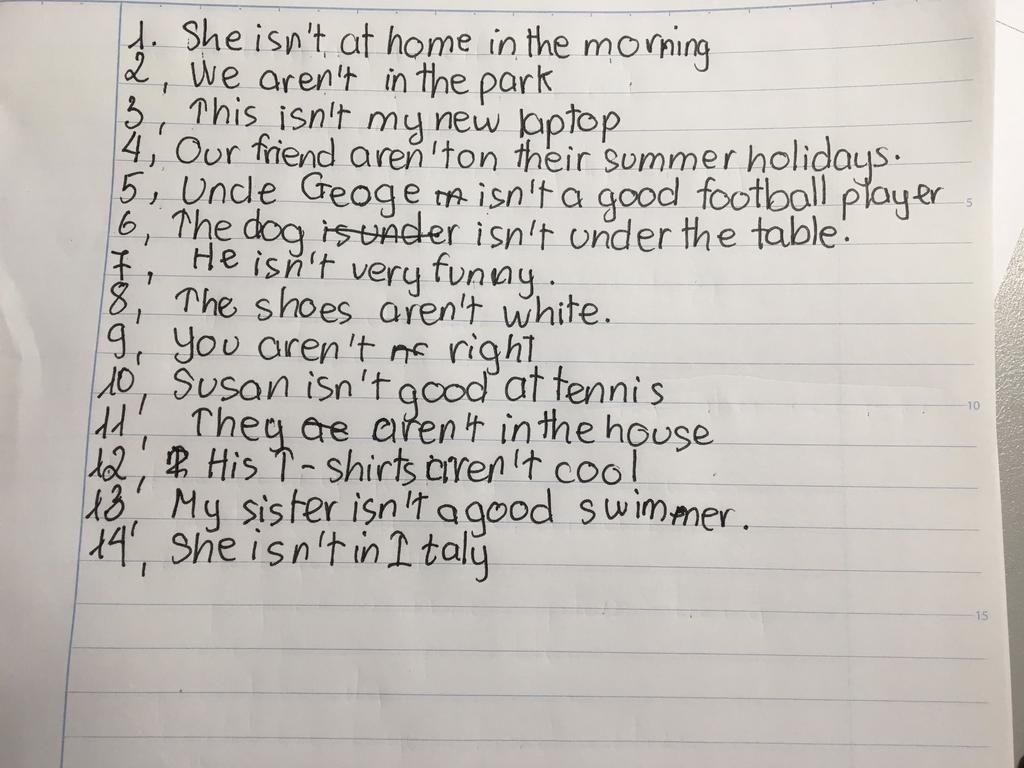 1. She isn't at home in the morning
2, We aren't in the park
3, This isn't my new laptop
4, Our friend aren't on their summer holidays.
5, Uncle Geoge isn't a good football player
5
6, The dog is under isn't under the table.
7, He isn't very funny.
8, The shoes aren't white.
9, You aren't right
10, Susan isn't good at tennis
10
11, They ae aren't in the house
12, His T-shirts aren't cool
13, My sister isn't a good swimmer.
14, She isn't in Italy
15